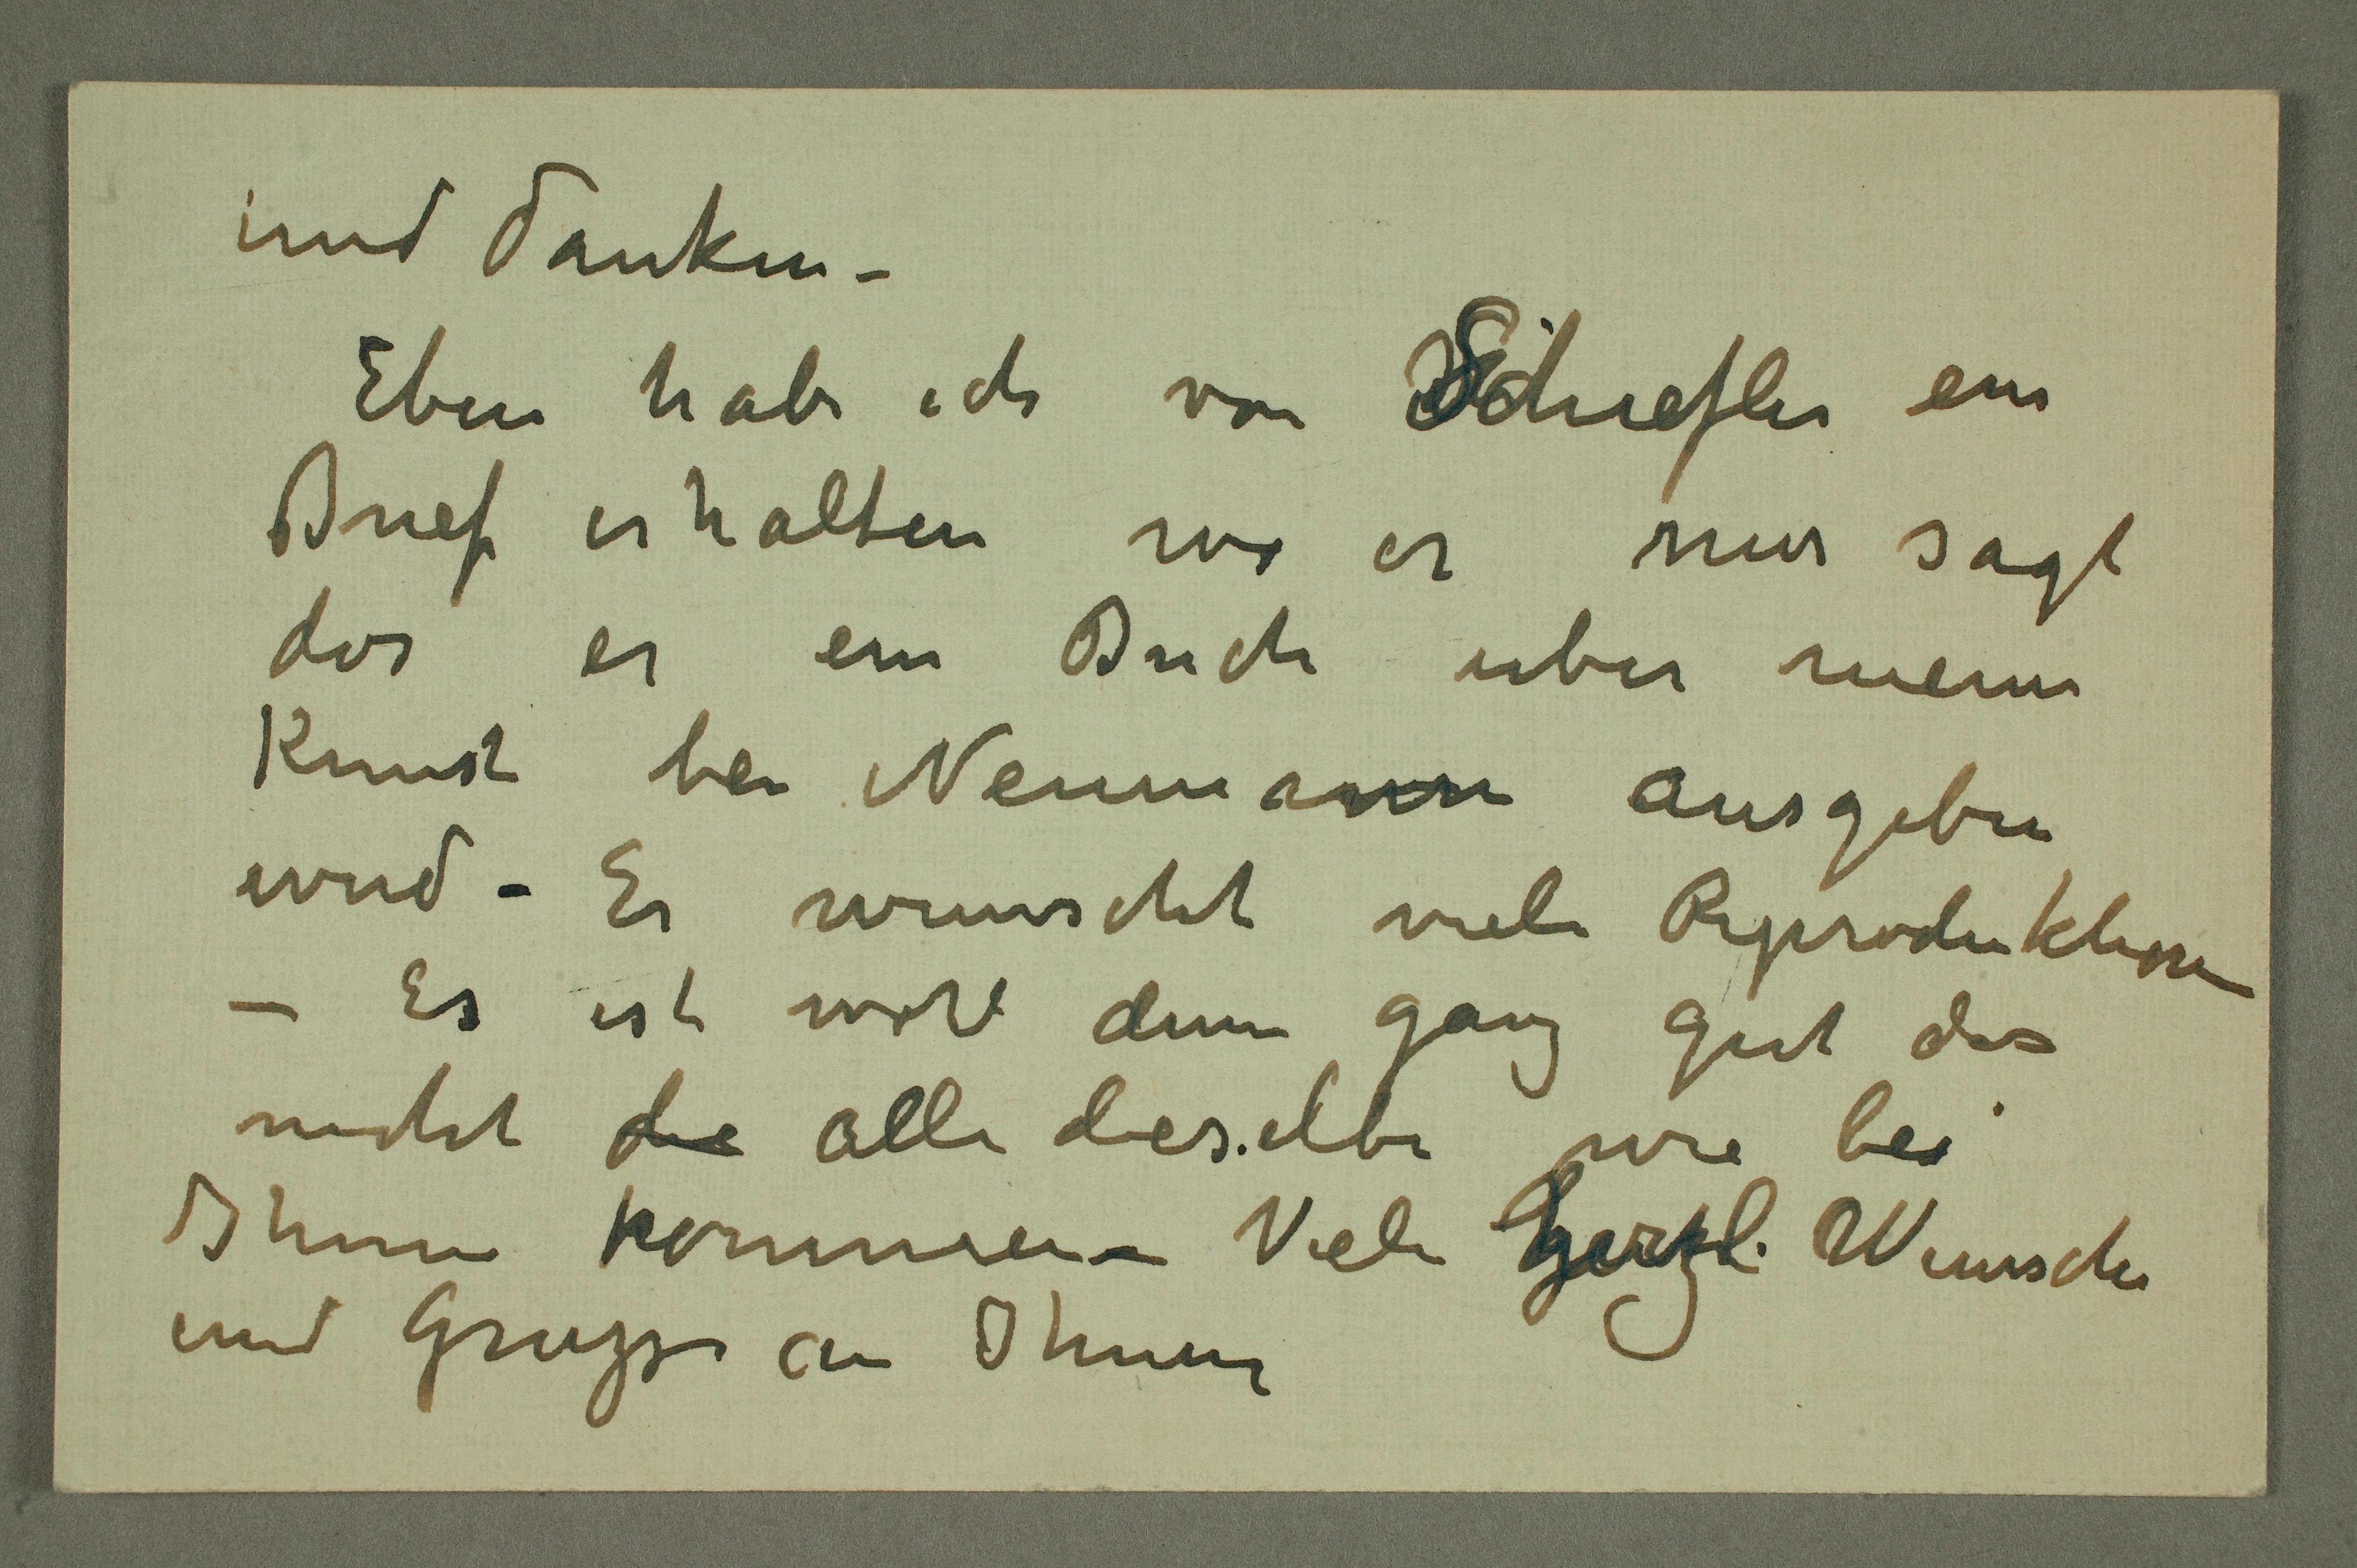 und danken –
Eben habe ich von Schiefler ein
Brief erhalten wo er mir sagt
das er ein Buch uber meine
Kunst bei Neumann ausgeben
wird – Er wunscht viele Reproduktion
– Es ist wohl denn ganz gut das
nicht die alle dieselbe wie bei
Ihnen kommen – Viele herzl. Wunsche
und Grüsse an Ihnen